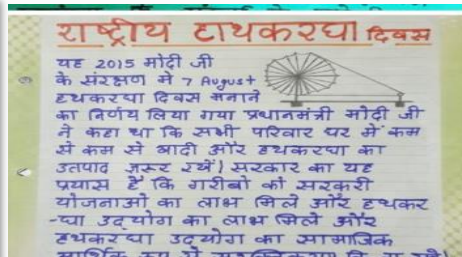 राष्ट्रीय हाथकरघा दिवस
यह 2015 मोदी जी
के संरक्षण मे 7 August
हथकरघा दिवस मनाने
का निर्णय लिया गया प्रधानमंत्री मोदी जी
ने कहा था कि सभी परिवार घर में कम
से कम से खादी और हथकरघा का
उतपाद जरूर रखें। सरकार का यह
प्रयास हैं कि गरीबो को सरकरी
योजनाओं का लाभ मिले और हथकर
-घा उद्योग का लाभ मिले और
हथकरघा उद्योग का सामाजिक